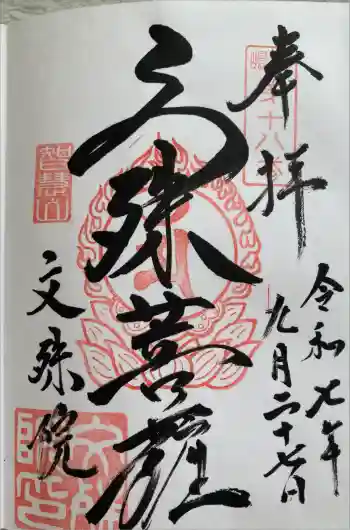 奉拝
令和七年
九月二十七日
文殊菩薩
文殊院
智慧山